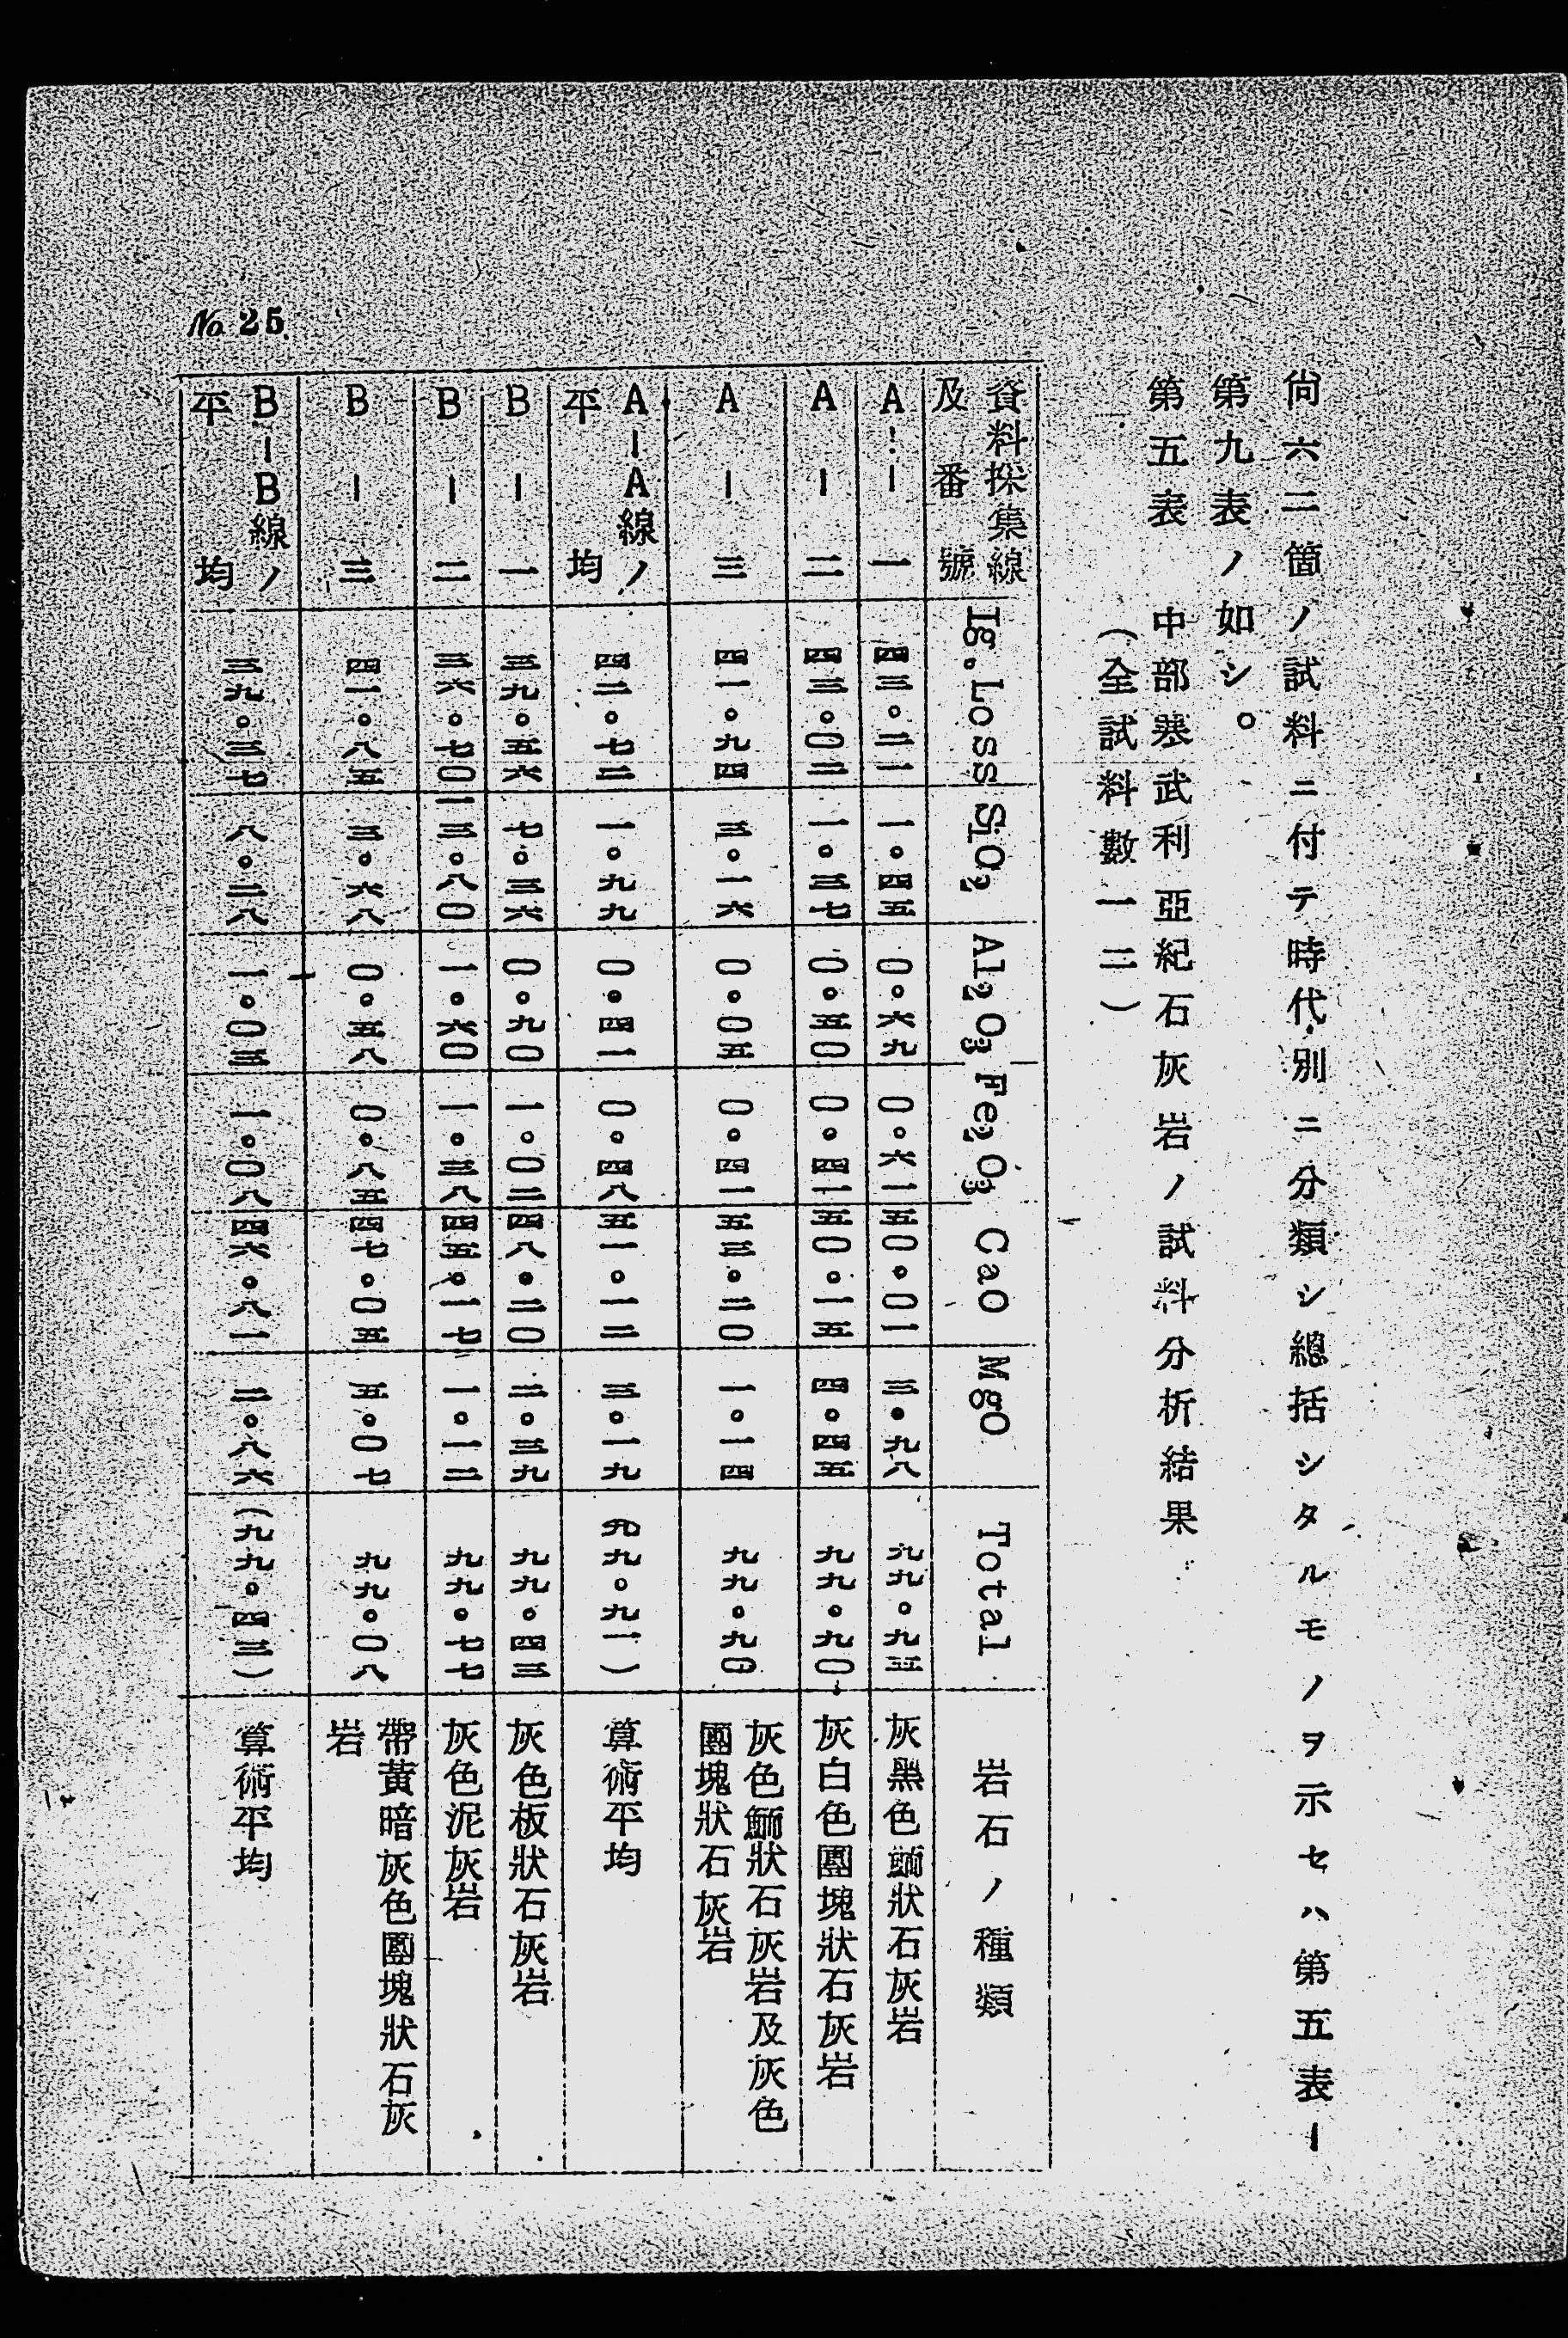 尙六二箇ノ試料ニ付テ時代別ニ分類シ總括シタルモノヲ示セハ第五表ー
第九表ノ如シ。
第五表 中部寒武利亞紀石灰岩ノ試料分析結果
(全試料數一二)
資料採集線及番號 Ig.Loss SiO₂ Al₂O₃ Fe₂O₃ CaO MgO Total 岩石ノ種類
A—一 四三。二一 一。四五 〇。六九 〇。六一 五〇。〇一 三。九八 九九。九五 灰黑色鰤狀石灰岩
A—二 四三。〇二 一。三七 〇。五〇 〇。四一 五〇。一五 四。四五 九九。九〇 灰白色團塊狀石灰岩
A—三 四一。九四 三。一六 〇。〇五 〇。四一 五三。二〇 一。一四 九九。九〇 灰色鰤狀石灰岩及灰色
團塊狀石灰岩
A—A線ノ平均 四二。七二 一。九九 〇。四一 〇。四八 五一。一二 三。一九 (九九。九一) 算術平均
B—一 三九。五六 七。三六 〇。九〇 一。〇二 四八。二〇 二。三九 九九。四三 灰色板狀石灰岩
B—二 三六。七〇 一三。八〇 一。六〇 一。三八 四五。一七 一。一二 九九。七七 灰色泥灰岩
B—三 四一。八五 三。六八 〇。五八 〇。八五 四七。〇五 五。〇七 九九。〇八 帶黃暗灰色團塊狀石灰
岩
B—B線ノ平均 三九。三七 八。二八 一。〇三 一。〇八 四六。八一 二。八六 (九九。四三) 算術平均
No. 25